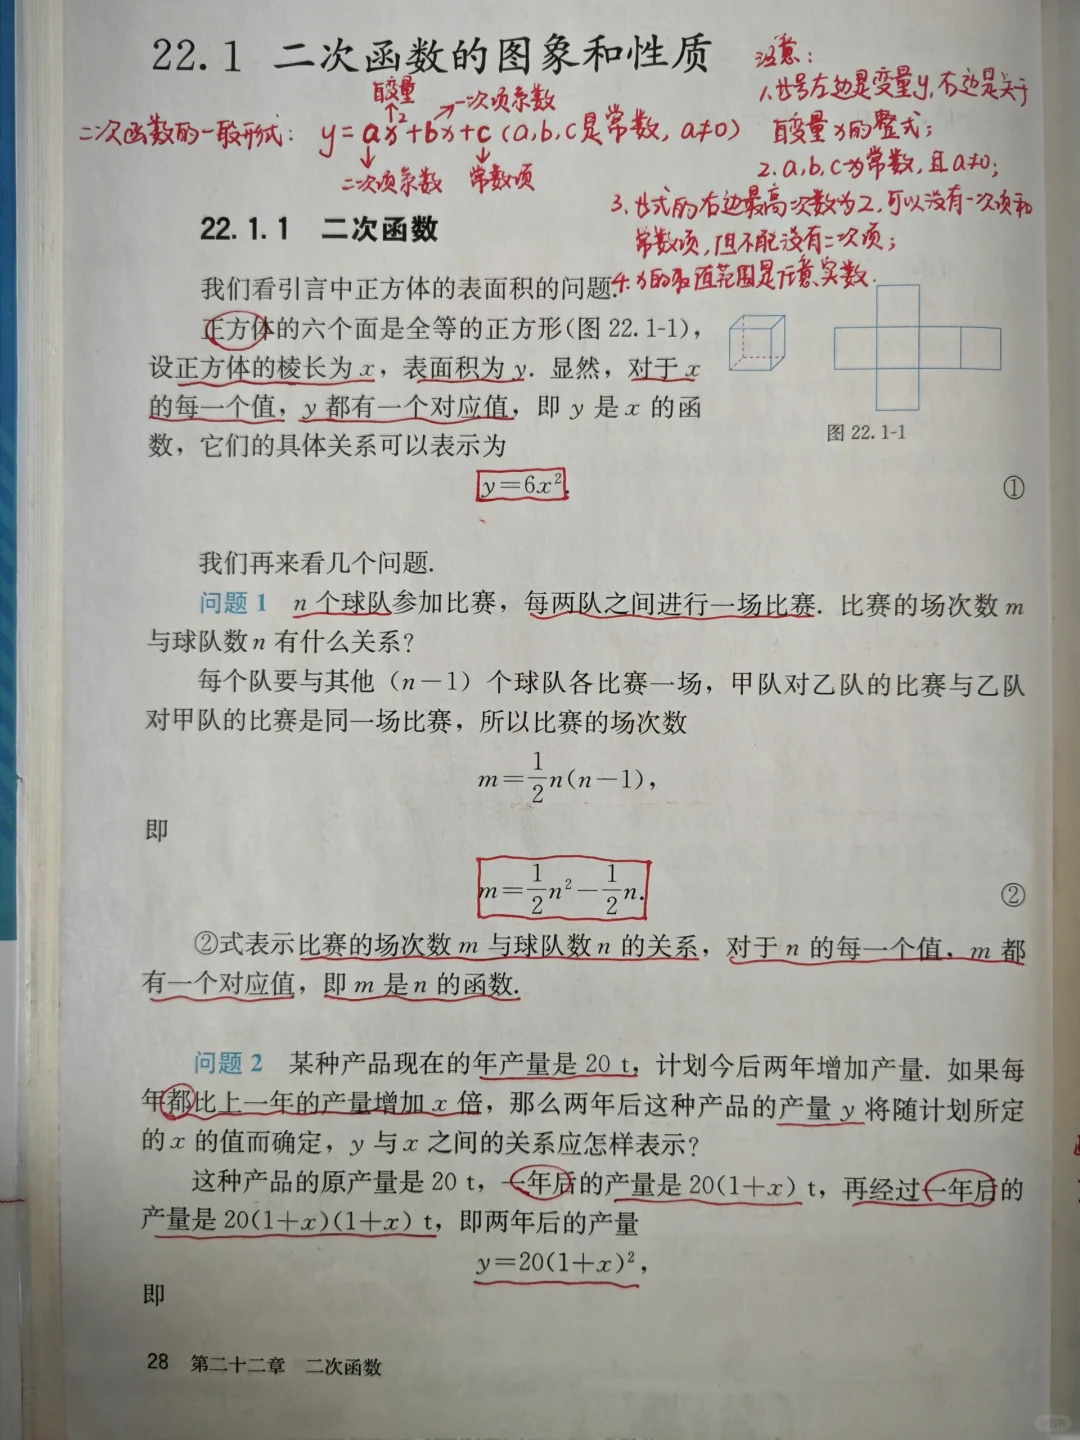 22.1 二次函数的图象和性质
注意:
自变量
一次项系数
1.等号左边是变量y,右边是关于
自变量x的整式;
二次函数的一般形式: y=ax²+bx+c (a,b,c是常数, a≠0)
二次项系数 常数项
2.a,b,c为常数,且a≠0;
3.等式的右边最高次数为2,可以没有一次项和
常数项,但不能没有二次项;
4.x的取值范围是任意实数.
22.1.1 二次函数
我们看引言中正方体的表面积的问题.
正方体的六个面是全等的正方形(图 22.1-1),
设正方体的棱长为 x,表面积为 y. 显然,对于 x
的每一个值,y 都有一个对应值,即 y 是 x 的函
数,它们的具体关系可以表示为
图 22.1-1
y=6x². ①
我们再来看几个问题.
问题 1 n 个球队参加比赛,每两队之间进行一场比赛. 比赛的场次数 m
与球队数 n 有什么关系?
每个队要与其他(n-1)个球队各比赛一场,甲队对乙队的比赛与乙队
对甲队的比赛是同一场比赛,所以比赛的场次数
m=1/2n(n-1),
即
m=1/2n²-1/2n. ②
②式表示比赛的场次数 m 与球队数 n 的关系,对于 n 的每一个值,m 都
有一个对应值,即 m 是 n 的函数.
问题 2 某种产品现在的年产量是 20 t,计划今后两年增加产量. 如果每
年都比上一年的产量增加 x 倍,那么两年后这种产品的产量 y 将随计划所定
的 x 的值而确定,y 与 x 之间的关系应怎样表示?
这种产品的原产量是 20 t,一年后的产量是 20(1+x) t,再经过一年后的
产量是 20(1+x)(1+x) t,即两年后的产量
y=20(1+x)²,
即
28 第二十二章 二次函数